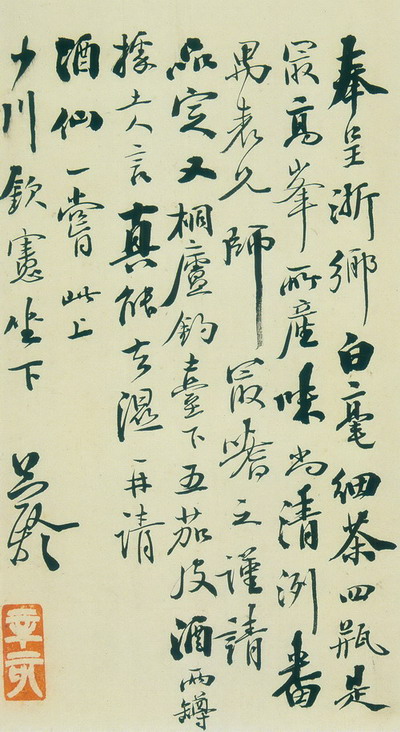 奉呈浙鄉白毫細茶四瓶是
最高峯所產味尚清冽番
禺表兄師最嗜之謹請
品定又桐廬釣臺下五茄皮酒兩罇
據土人言真能去濕再請
酒仙一嘗此上
少川欽憲坐下